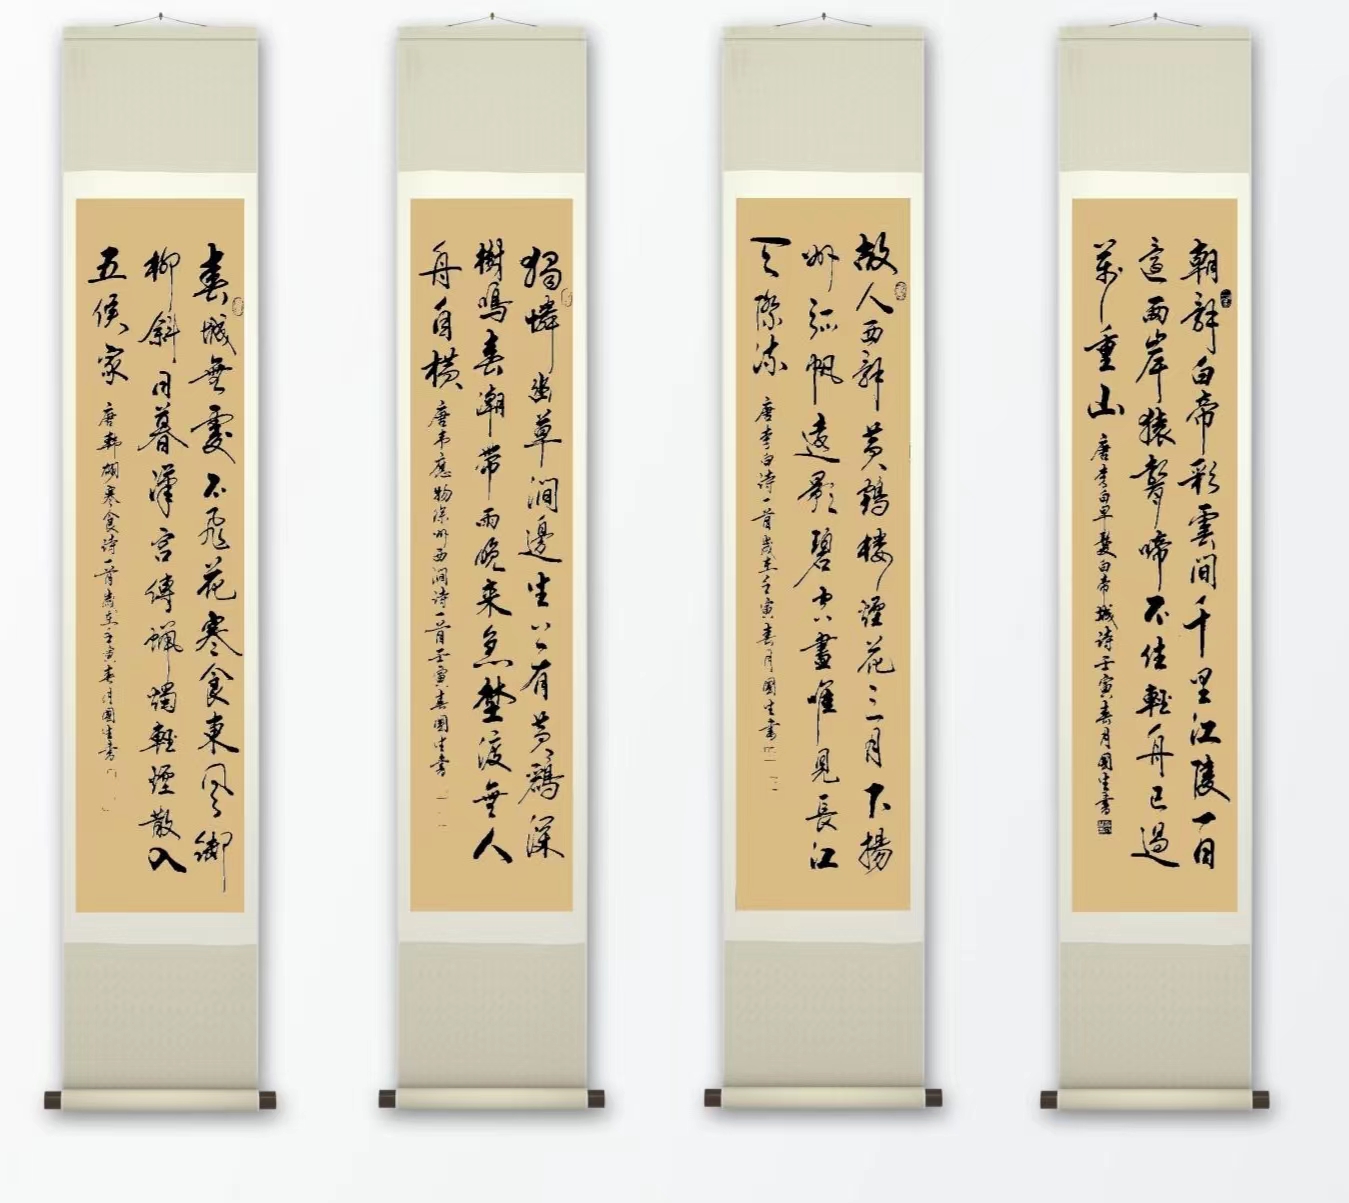 朝辭白帝彩雲間千里江陵一日
還兩岸猿聲啼不住輕舟已過
萬重山
唐李白早發白帝城詩壬寅春月國生書
故人西辭黃鶴樓煙花三月下揚
州孤帆遠影碧空盡唯見長江
天際流
唐李白诗一首歲在壬寅春月國生書
獨憐幽草澗邊生上有黃鸝深
樹鳴春潮帶雨晚来急野渡無人
舟自橫
唐韦應物滁州西澗詩一首壬寅春國生書
春城無處不飛花寒食東風御
柳斜日暮漢宮傳蠟燭輕煙散入
五侯家
唐韓翃寒食诗一首歲在壬寅春月國生書